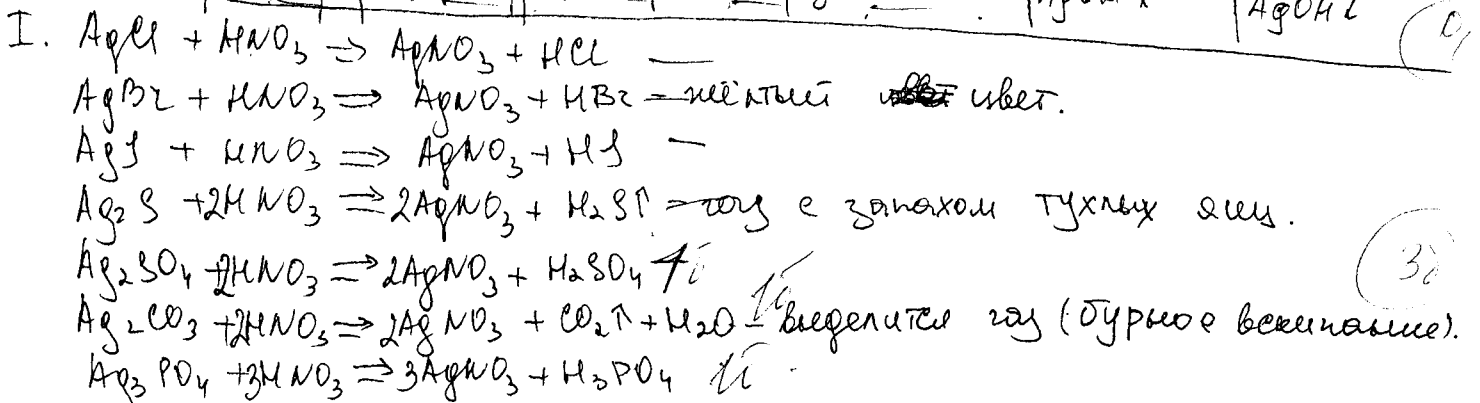 AgOH↓
I. AgCl + HNO₃ ⇒ AgNO₃ + HCl —
AgBr + HNO₃ ⇒ AgNO₃ + HBr — жёлтый цвет.
AgI + HNO₃ ⇒ AgNO₃ + HI —
Ag₂S + 2HNO₃ ⇒ 2AgNO₃ + H₂S↑ — газ с запахом тухлых яиц.
Ag₂SO₄ + 2HNO₃ ⇒ 2AgNO₃ + H₂SO₄ 1б
3б
Ag₂CO₃ + 2HNO₃ ⇒ 2AgNO₃ + CO₂↑ + H₂O — выделится газ (бурное вскипание). 1б
Ag₃PO₄ + 3HNO₃ ⇒ 3AgNO₃ + H₃PO₄ 1б